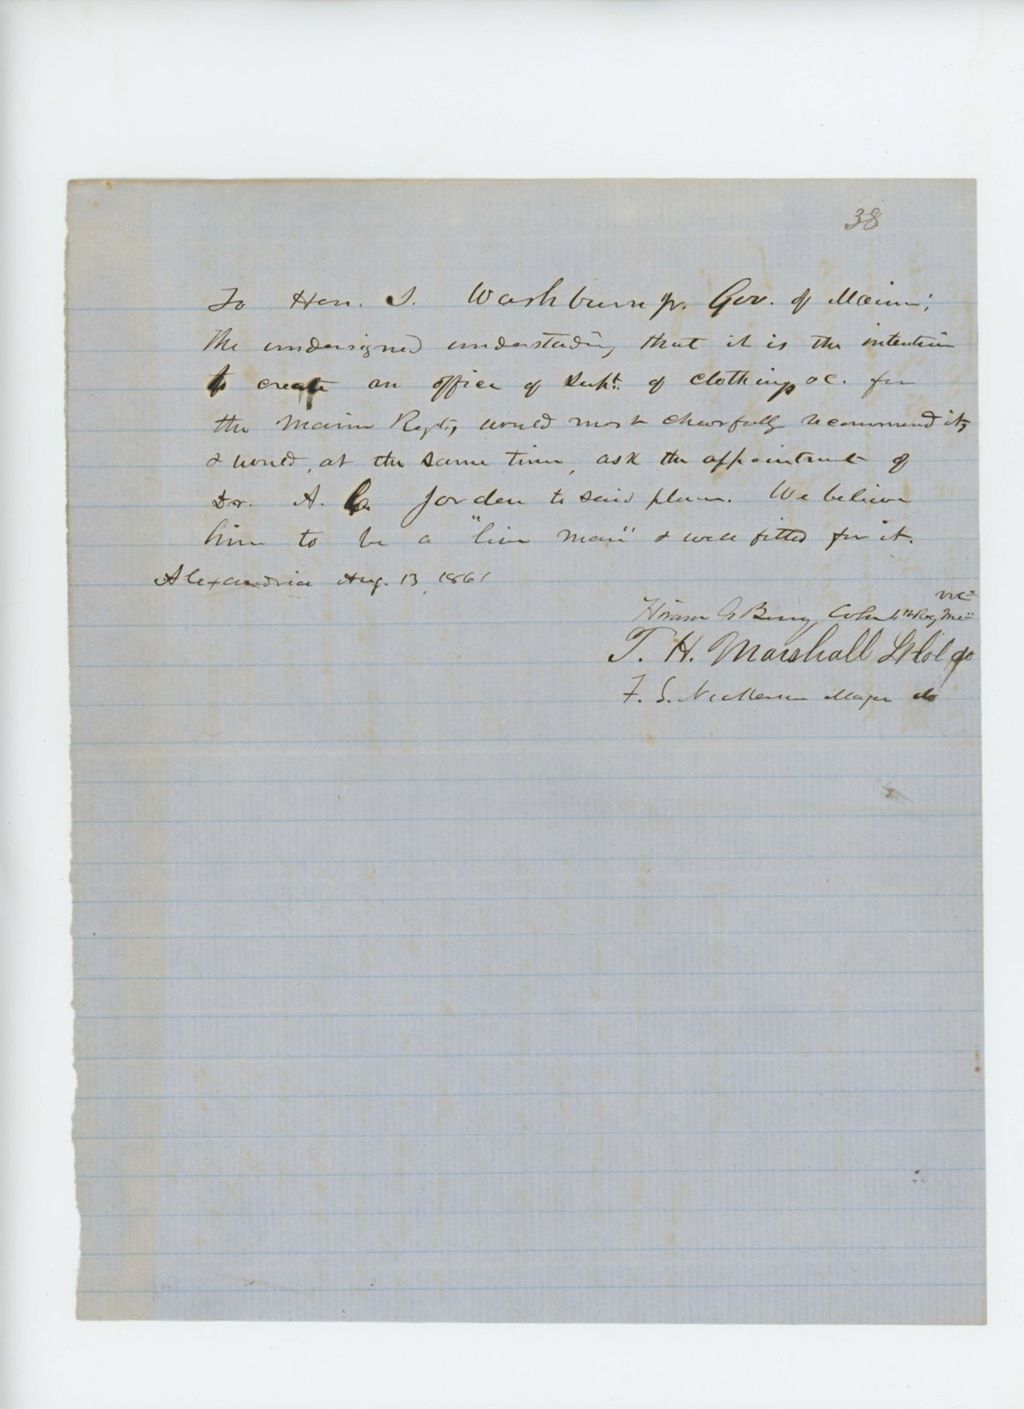 38
To Hon. I. Washburn jr. Gov. of Maine;
The undersigned understanding that it is the intention
to create an office of Supt. of clothing &c. for
the Maine Regts, would most cheerfully recommend it,
& would, at the same time, ask the appointment of
Dr. A. C. Jorden to said place. We believe
him to be a "live man" & well fitted for it.
Alexandria Aug. 13, 1861
Vols
Hiram G Berry Col 4th Reg Me
T. H. Marshall Lt Col do
F. S. Nickerson Major do